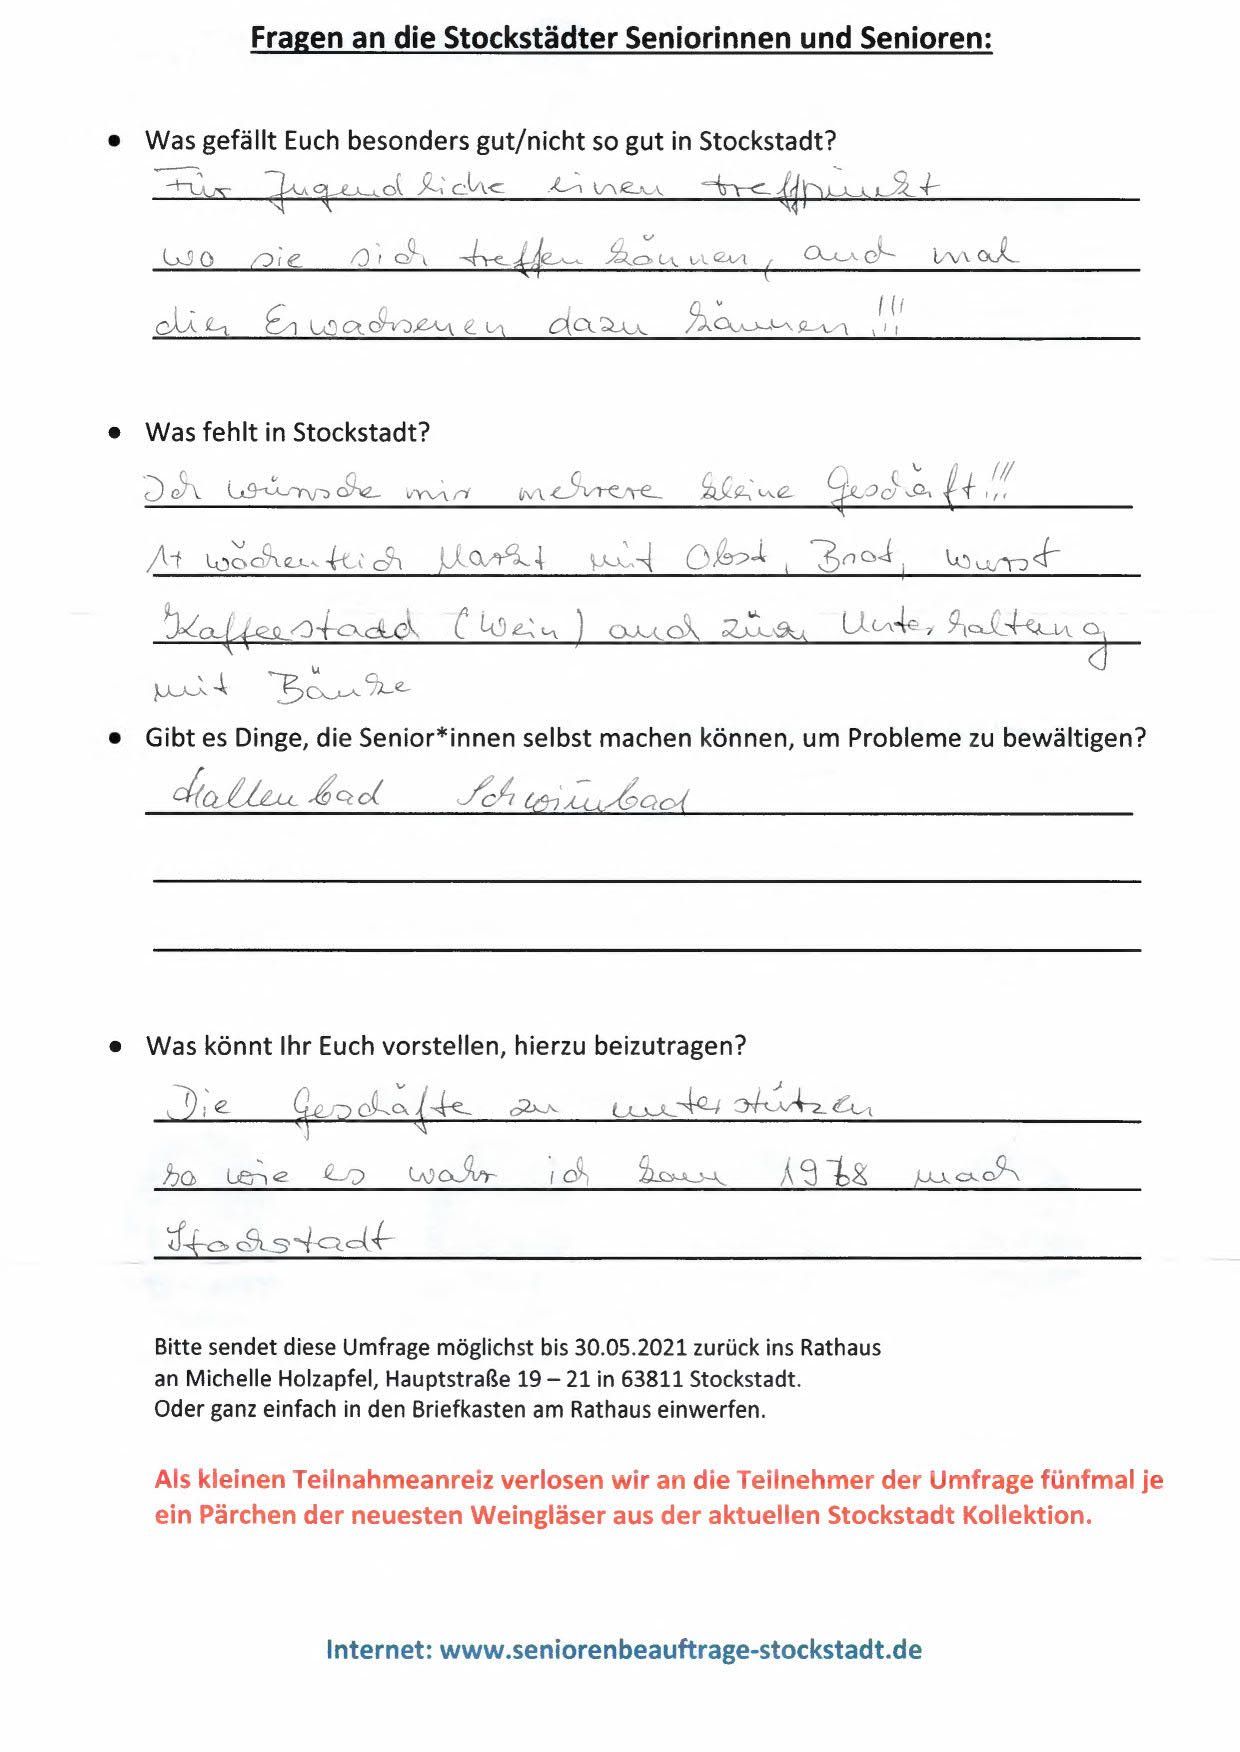 Fragen an die Stockstädter Seniorinnen und Senioren:
• Was gefällt Euch besonders gut/nicht so gut in Stockstadt?
Für Jugendliche einen treffpunkt
wo sie sich treffen können, auch mal
die Erwachsenen dazu können!!!
• Was fehlt in Stockstadt?
Ich wünsche mir mehrere kleine Geschäft!!!
1+ wöchentlich Markt mit Obst, Brot, wurst
Kaffeestadd (Wein) auch zur Unterhaltung
mit Bänke
• Gibt es Dinge, die Senior*innen selbst machen können, um Probleme zu bewältigen?
Hallenbad Schwim̄bad
• Was könnt Ihr Euch vorstellen, hierzu beizutragen?
Die Geschäfte zu unterstützen
so wie es wahr ich kam 1978 nach
Stockstadt
Bitte sendet diese Umfrage möglichst bis 30.05.2021 zurück ins Rathaus
an Michelle Holzapfel, Hauptstraße 19 – 21 in 63811 Stockstadt.
Oder ganz einfach in den Briefkasten am Rathaus einwerfen.
Als kleinen Teilnahmeanreiz verlosen wir an die Teilnehmer der Umfrage fünfmal je
ein Pärchen der neuesten Weingläser aus der aktuellen Stockstadt Kollektion.
Internet: www.seniorenbeauftrage-stockstadt.de